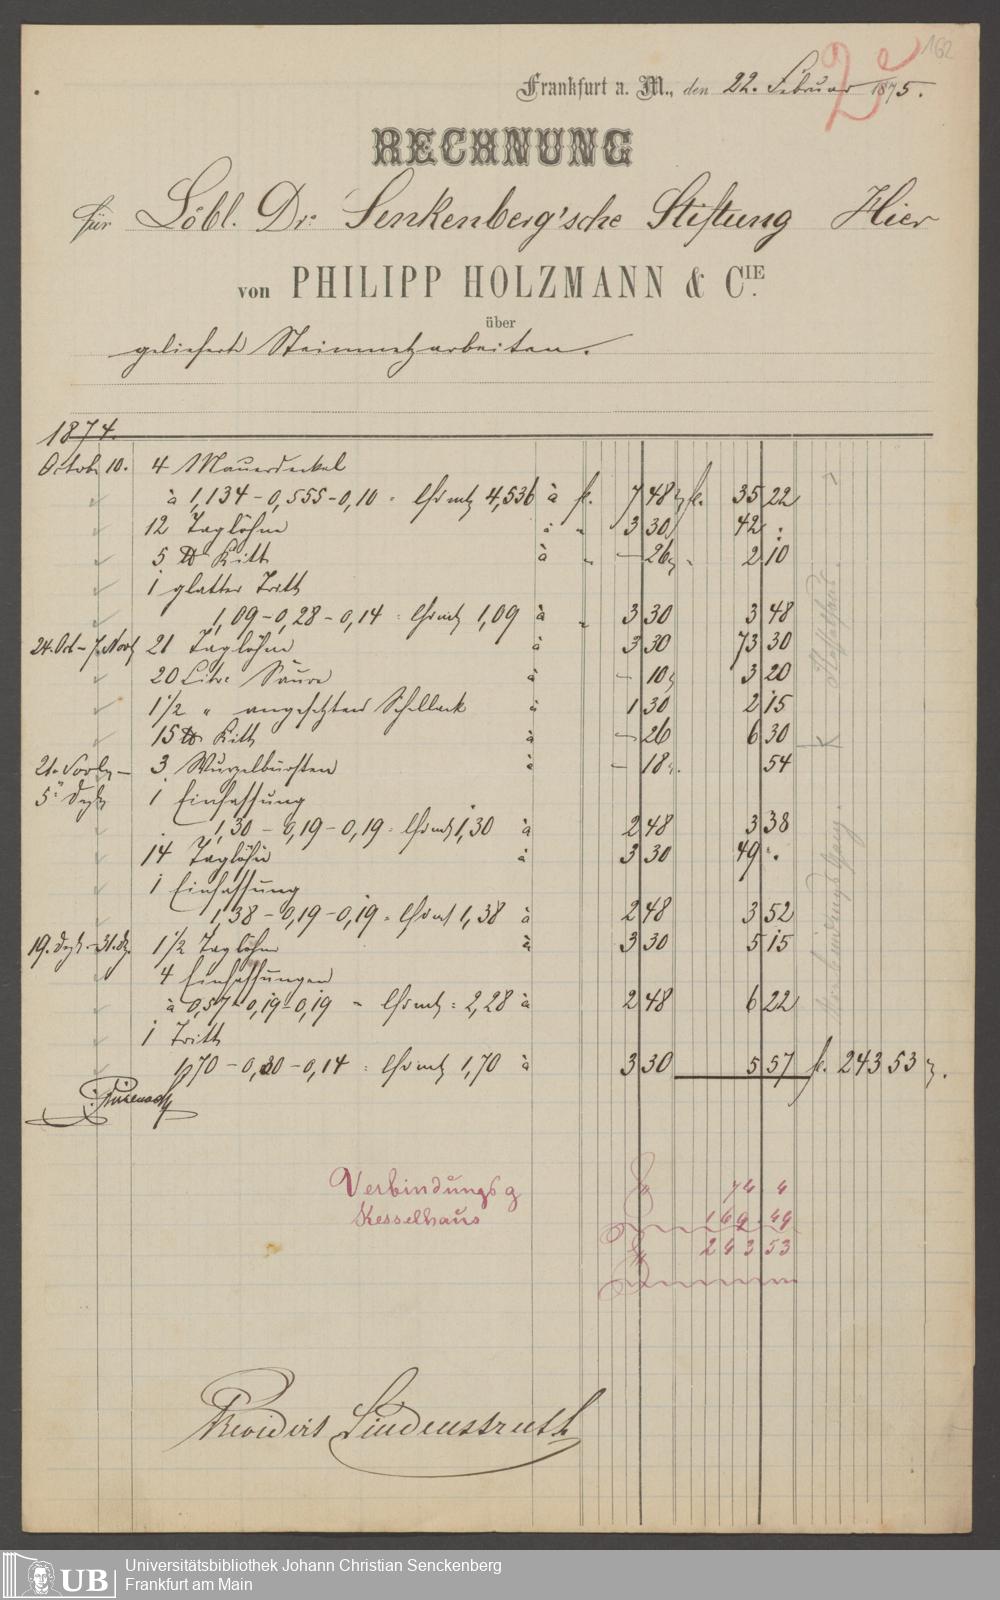 162
2e
Frankfurt a. M., den 22. Februar 1875.
RECHNUNG
für Löbl. Dr. Senkenberg'sche Stiftung Hier
von PHILIPP HOLZMANN & CIE.
über
gelieferte Steinmetzarbeiten.
1874.
Octob. 10. 4 Mauerdeckel
à 1,134 - 0,555 - 0,10 = lfdmtr 4,536 à fl. 7 48 fl. 35 22
12 Taglöhne à " 3 30 42 .
5 ℔ Kitt à " - 26 " 2 10
1 glatter Tritt
1,09 - 0,28 - 0,14 = lfdmtr 1,09 à " 3 30 3 48
24. Oct - 7. Novb 21 Taglöhne à 3 30 73 30
20 Litre Säure à - 10 3 20
1 1/2 " angesetzten Schellack à 1 30 2 15
15 ℔ Kitt à - 26 6 30
21. Novb - 3 Wurzelbürsten à - 18 54
5. Dezb 1 Einfassung
1,30 - 0,19 - 0,19 = lfdmtr 1,30 à 2 48 3 38
14 Taglöhne à 3 30 49 .
1 Einfassung
1,38 - 0,19 - 0,19 = lfdmt 1,38 à 2 48 3 52
19. Dezb - 31. Dz. 1 1/2 Taglöhne à 3 30 5 15
4 Einfassungen
à 0,57 - 0,19 - 0,19 = lfdmtr = 2,28 à 2 48 6 22
1 Tritt
1,70 - 0,30 - 0,14 = lfdmtr 1,70 à 3 30 5 57 fl. 243 53
Kesselhaus
Verbindungsgang
Verbindungsg fl 74 4
Kesselhaus 169 49
fl 243 53
Revidirt Lindenstruth
UB
Universitätsbibliothek Johann Christian Senckenberg
Frankfurt am Main